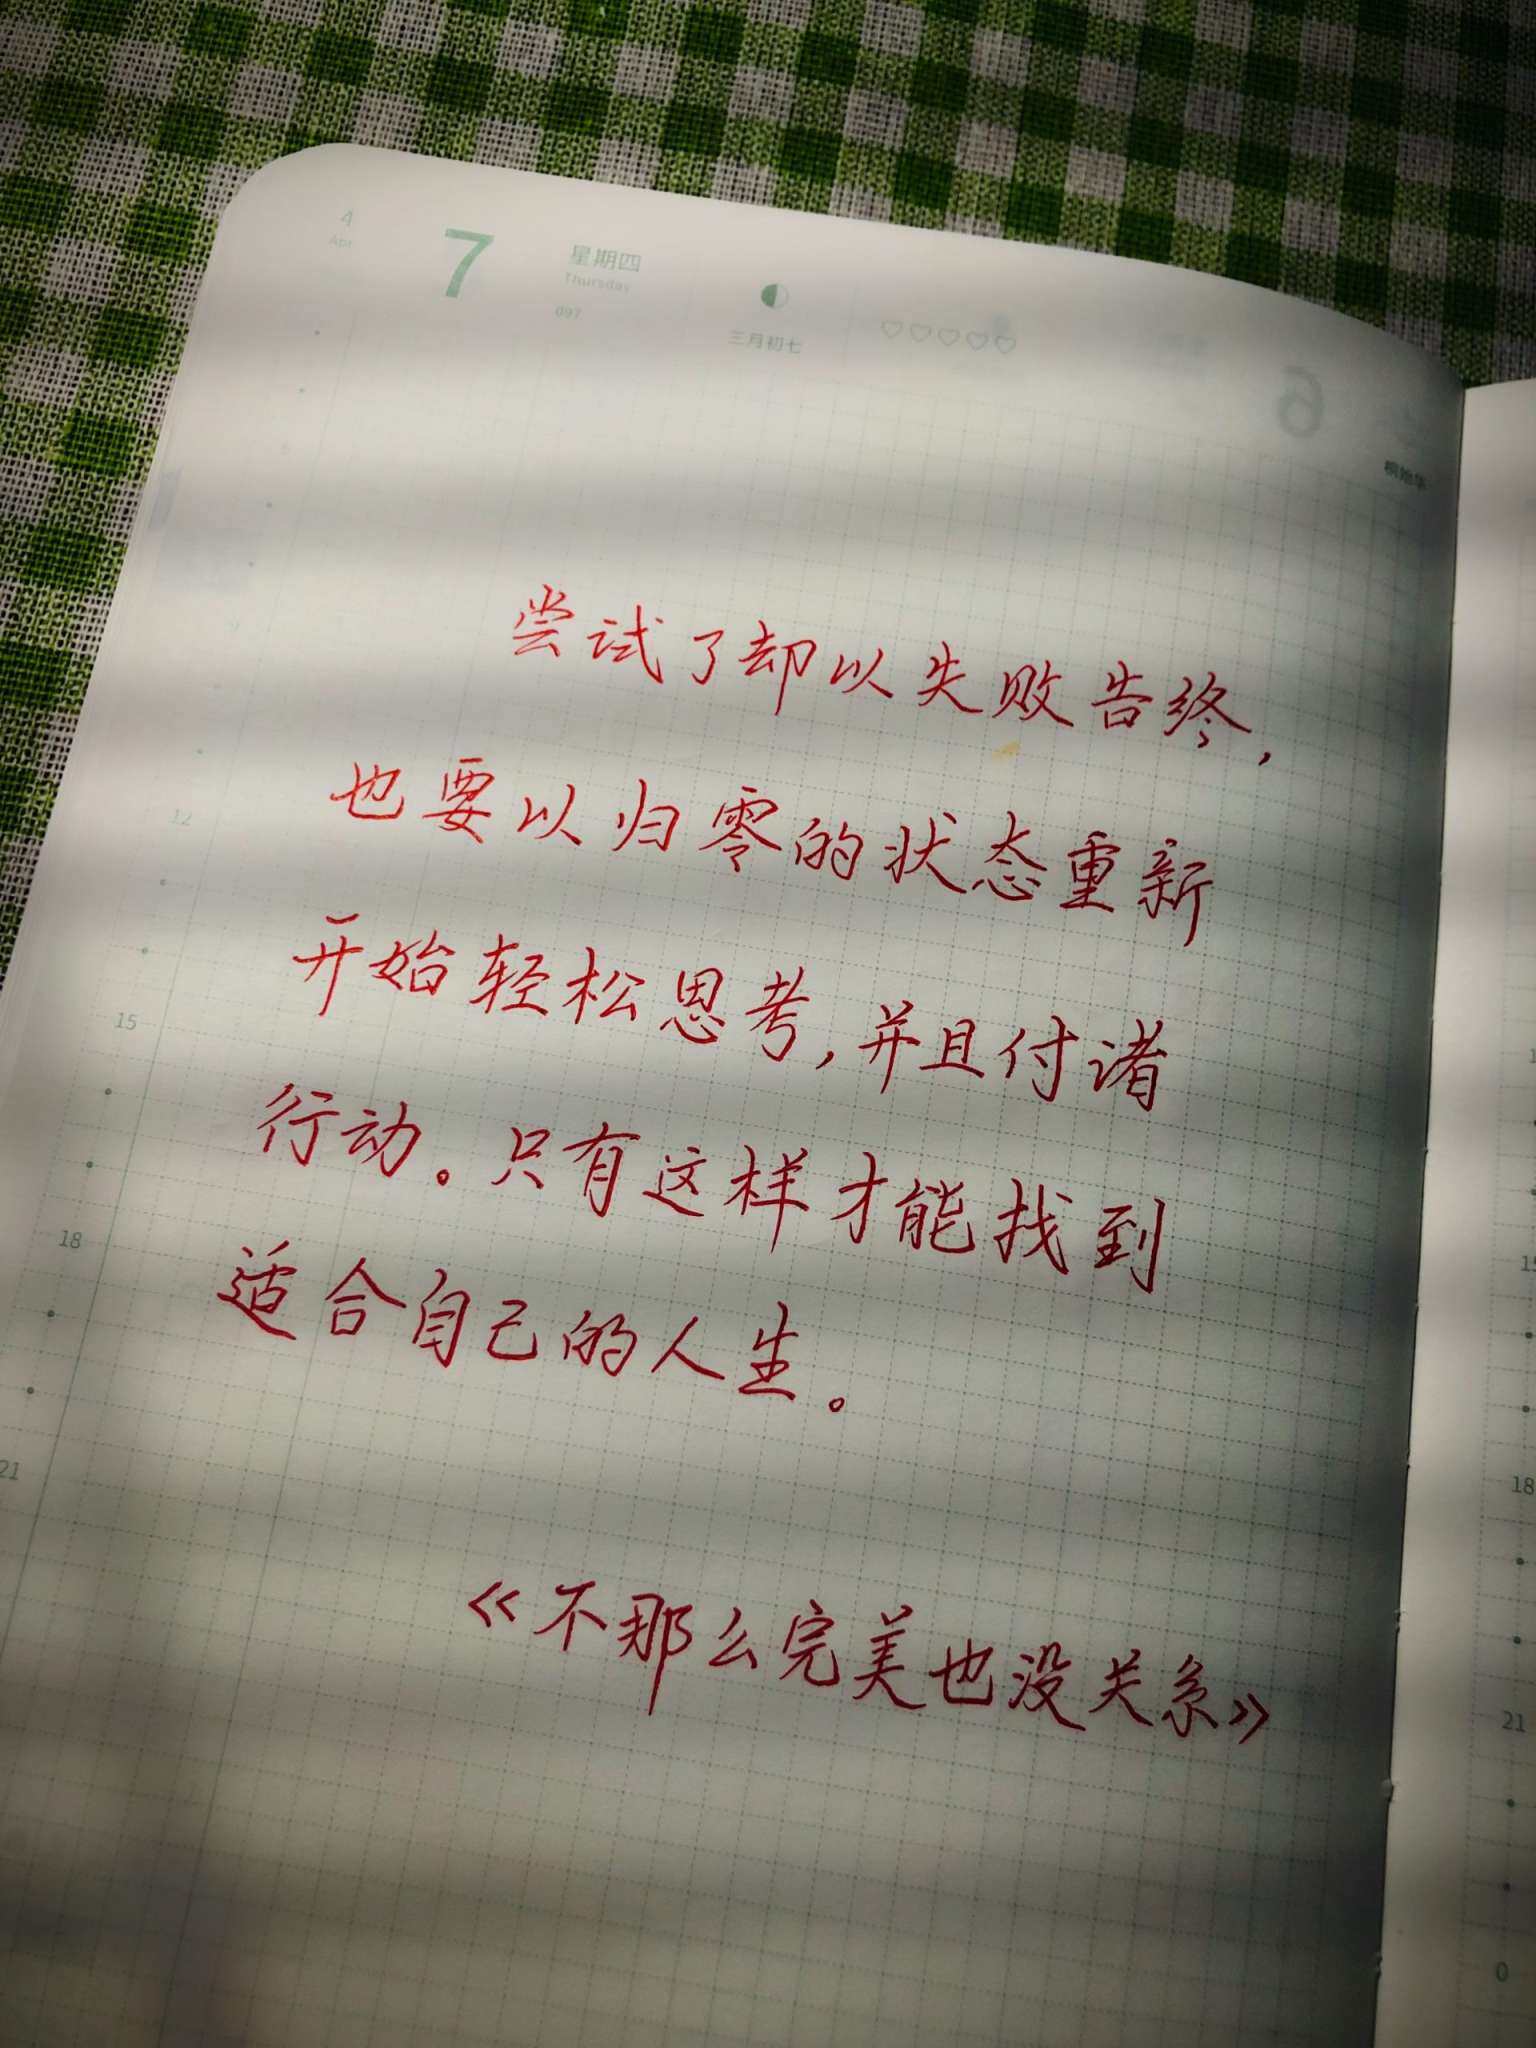 4
Apr
7
星期四
Thursday
097
三月初七
尝试了却以失败告终，
也要以归零的状态重新
开始轻松思考，并且付诸
行动。只有这样才能找到
适合自己的人生。
《不那么完美也没关系》
12
15
18
21
18
21
0